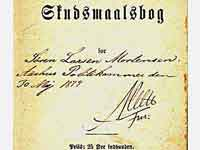 Skudsmaalsbog
for
Thora Larsen Mortensen,
Aarhus Politikammer den
30 Maj 1879
Pris: 25 Øre indbunden.